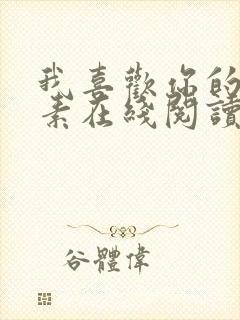 我喜歡你的
素在綫閱讀
谷體偉